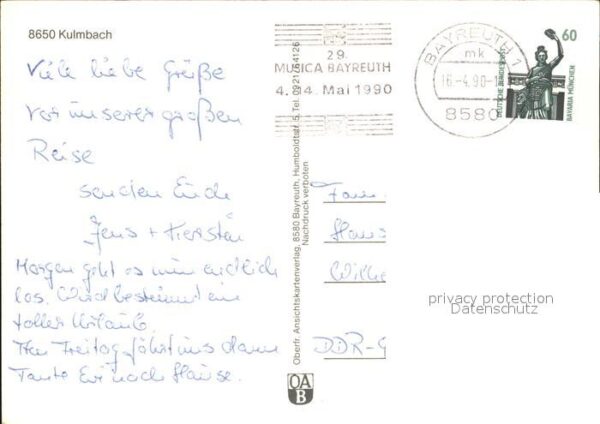 8650 Kulmbach
Viele liebe Grüße
vor unserer großen
Reise
senden Euch
Jens + Kiersten
Morgen geht es nun endlich
los. Wird bestimmt ein
toller Urlaub.
Am Freitag fährt uns dann
Tante Evi nach Hause.
29.
MUSICA BAYREUTH
4.-24. Mai 1990
BAYREUTH 1
mk
16.-4.90-1
8580
60
DEUTSCHE BUNDESPOST
BAVARIA MÜNCHEN
Oberfr. Ansichtskartenverlag, 8580 Bayreuth, Humboldtstr. 5, Tel. 0921/64126
Nachdruck verboten
Fam.
Hans
Wilhe
DDR-9
OA
B
privacy protection
Datenschutz